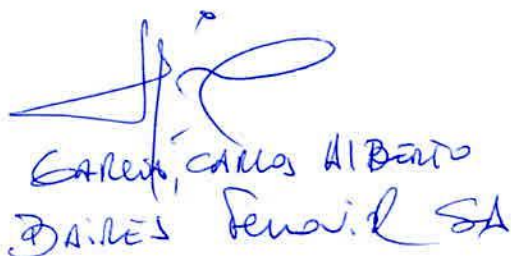 GARCIA, CARLOS ALBERTO
BAIRES Fenovi.R SA